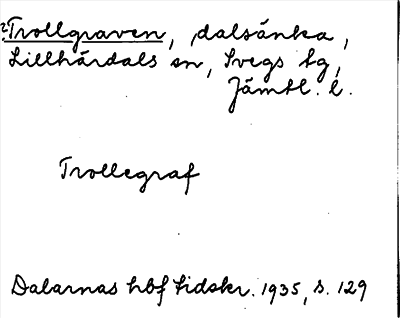 ?Trollgraven, dalsänka,
Lillhärdals sn, Svegs tg,
Jämtl. l.
Trollegraf
Dalarnas hbf tidskr. 1935, s. 129